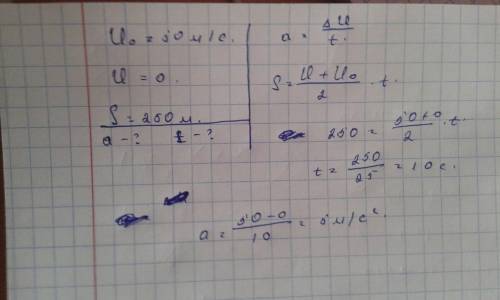 U₀ = 50 м/с.
U = 0.
S = 250 м.
a - ? t - ?
a = ΔU / t.
S = (U + U₀) / 2 · t.
250 = (50 + 0) / 2 · t.
t = 250 / 25 = 10 с.
a = (50 - 0) / 10 = 5 м/с²